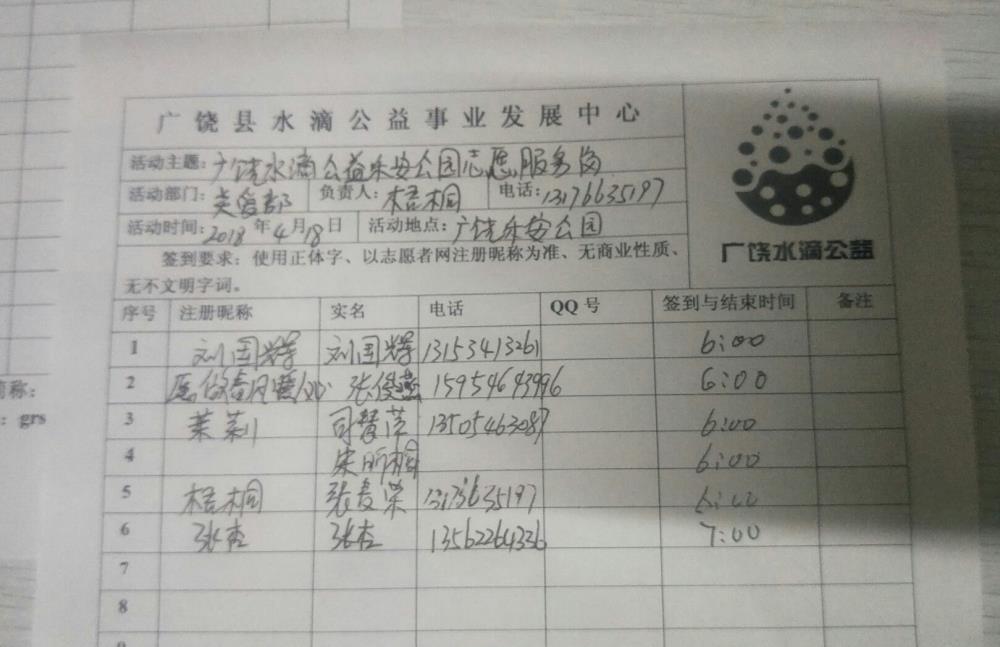 广饶县水滴公益事业发展中心
活动主题：广饶水滴公益乐安公园志愿服务岗
活动部门： 负责人：梧桐 电话：13176635197
活动时间：2018年4月18日 活动地点：广饶乐安公园
签到要求：使用正体字、以志愿者网注册昵称为准、无商业性质、
无不文明字词。
广饶水滴公益
序号 注册昵称 实名 电话 QQ号 签到与结束时间 备注
1 刘国辉 刘国辉 13153413261 6:00
2 张俊燕 15954643996 6:00
3 茉莉 司慧萍 13505463087 6:00
4 宋 6:00
5 梧桐 张麦荣 6:00
6 张杏 张杏 13562264336 7:00
7
8
称：
：grs